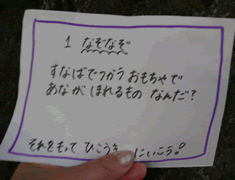 1 なぞなぞ
すなばでつかう おもちゃで
あなが ほれるもの なんだ?
それをもって ひこうき にいこう!